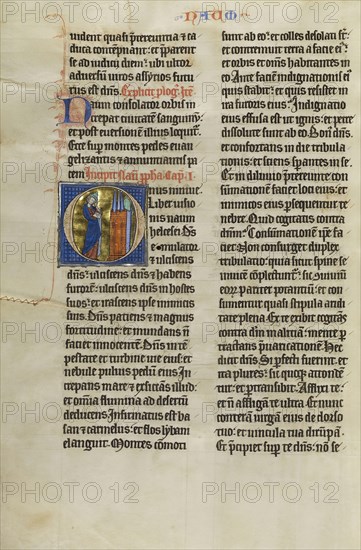 NAUM
uident quasi pretereuntia et ca
duca contempnant: et preparent
se ad iudicii diem: ubi ultor
aduersum ueros assyrios futu
rus est dns. Explicit plog.
Naum consolator orbis in
crepat ciuitatem sanguinum:
et post euersionem illius loquitur.
Ecce super montes pedes euan
gelizantis et annunciantis pa
cem
Onus niniue.
Liber uisio
nis naum
helcesei. Ds
emulator
et ulciscens
dns: ulciscens dns et habens
furorem: ulciscens dns in hostes
suos: et irascens ipse inimicis
suis. Dns patiens et magnus
fortitudine: et mundans n
faciet innocentem. Dns in tem
pestate et turbine uie eius: et
nebule puluis pedum eius. In
crepans mare et exsiccans illud:
et omnia flumina ad desertum
deducens. Infirmatus est ba
san et carmelus: et flos libani
elanguit. Montes commoti
sunt ab eo: et colles desolati sunt:
et contremuit terra a facie eius:
et orbis et omnes habitantes in
eo. Ante faciem indignationis eius
quis stabit: et quis resistet in
ira furoris eius? Indignatio
eius effusa est ut ignis: et petre
dissolute sunt ab eo. Bonus dns
et confortans in die tribula
tionis: et sciens sperantes in se.
Et in diluuio pretereunte con
summationem faciet loci eius: et
inimicos eius persequentur te
nebre. Quid cogitatis contra
dnm? Consummationem ipse fa
ciet. Non consurget duplex
tribulatio: quia sicut spine se
inuicem complectuntur: sic conuiuium
eorum pariter potantium: et con
sumentur quasi stipula aridita
te plena. Ex te exibit cogitans
contra dnm malitiam: mente per
tractans preuaricationem. Hec
dicit dns. Si perfecti fuerint: et
ita plures: sic quoque attonden
tur: et pertransibit. Afflixi te:
et non affligam te ultra. Et nunc
conteram uirgam eius de dorso
tuo: et uincula tua dirumpam.
Et precipiet super te dns: non se